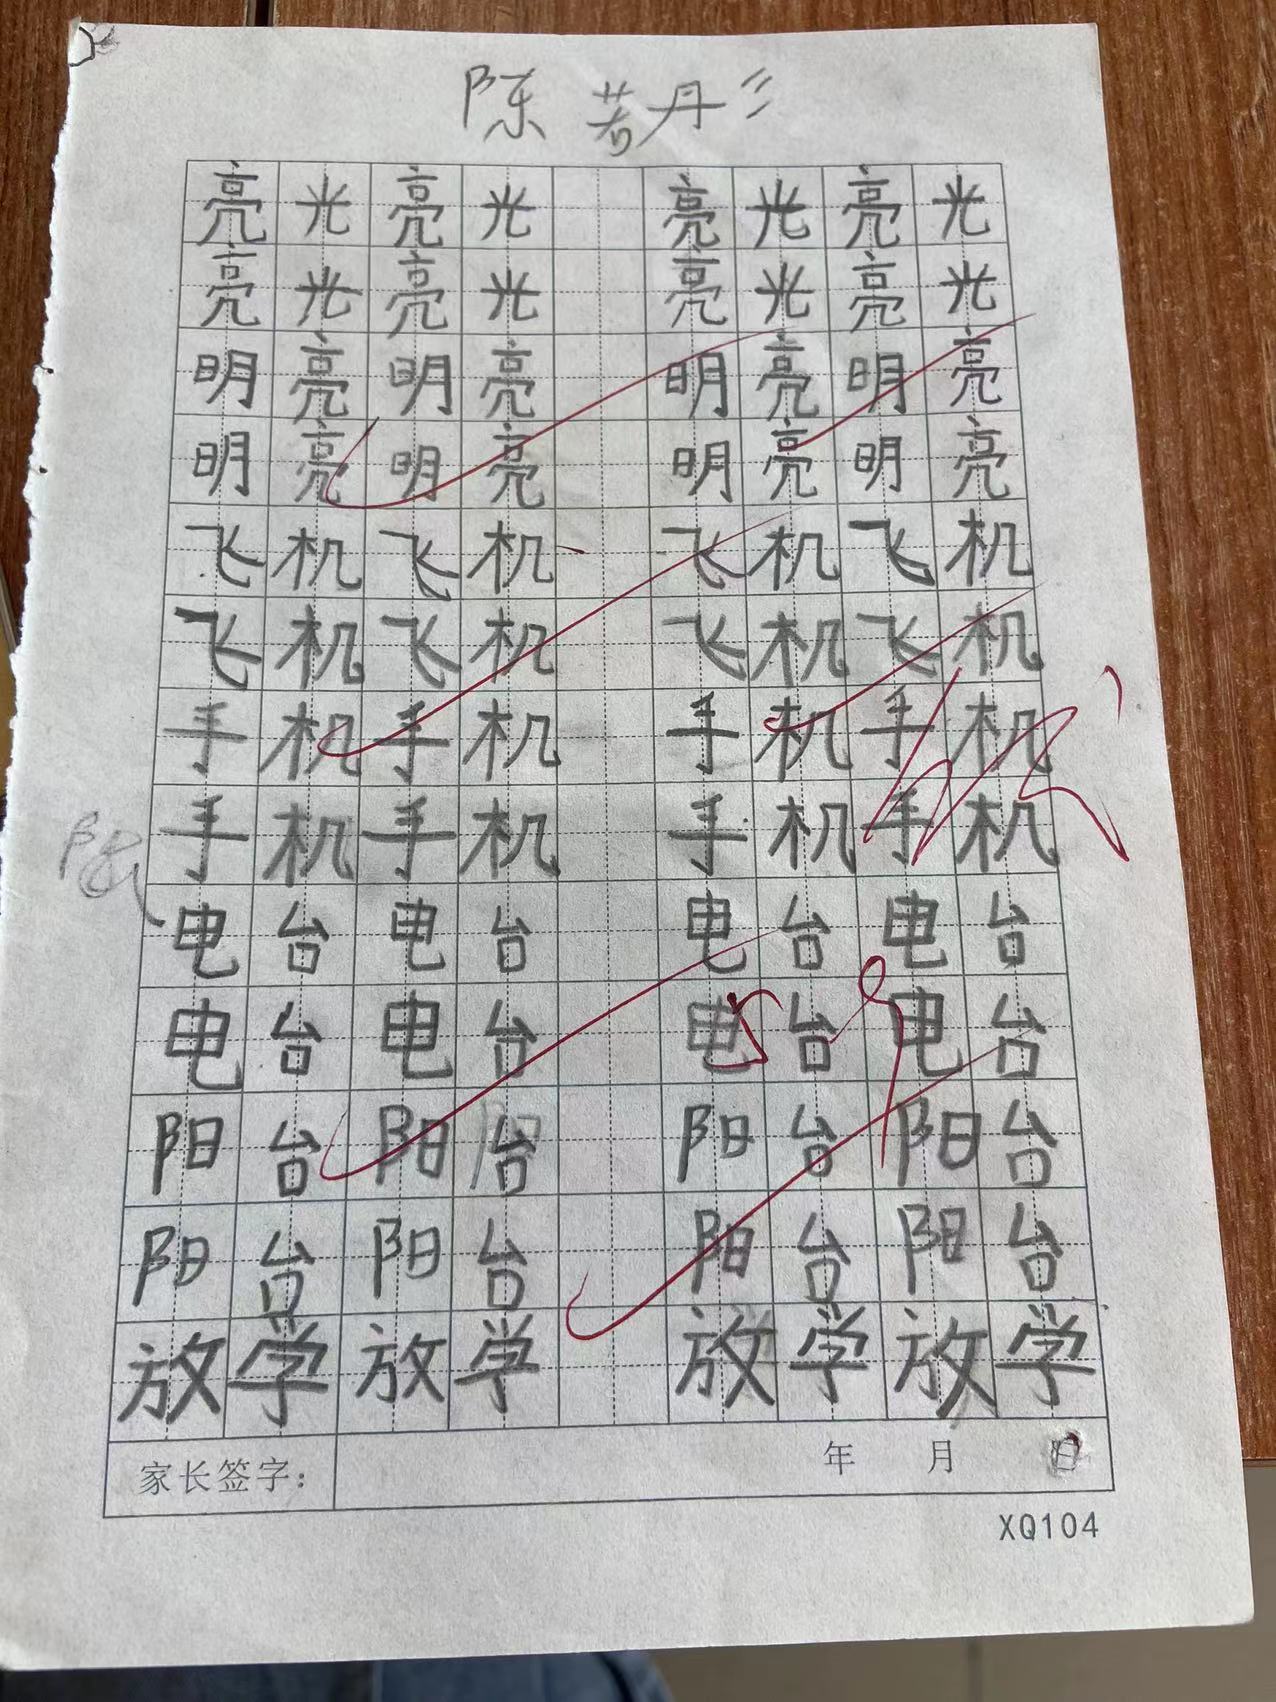 陈若彤
亮光亮光 亮光亮光
亮光亮光 亮光亮光
明亮明亮 明亮明亮
明亮明亮 明亮明亮
飞机飞机 飞机飞机
飞机飞机 飞机飞机
手机手机 手机手机
手机手机 手机手机
电台电台 电台电台
电台电台 电台电台
阳台阳台 阳台阳台
阳台阳台 阳台阳台
放学放学 放学放学
家长签字： 年 月 日
XQ104